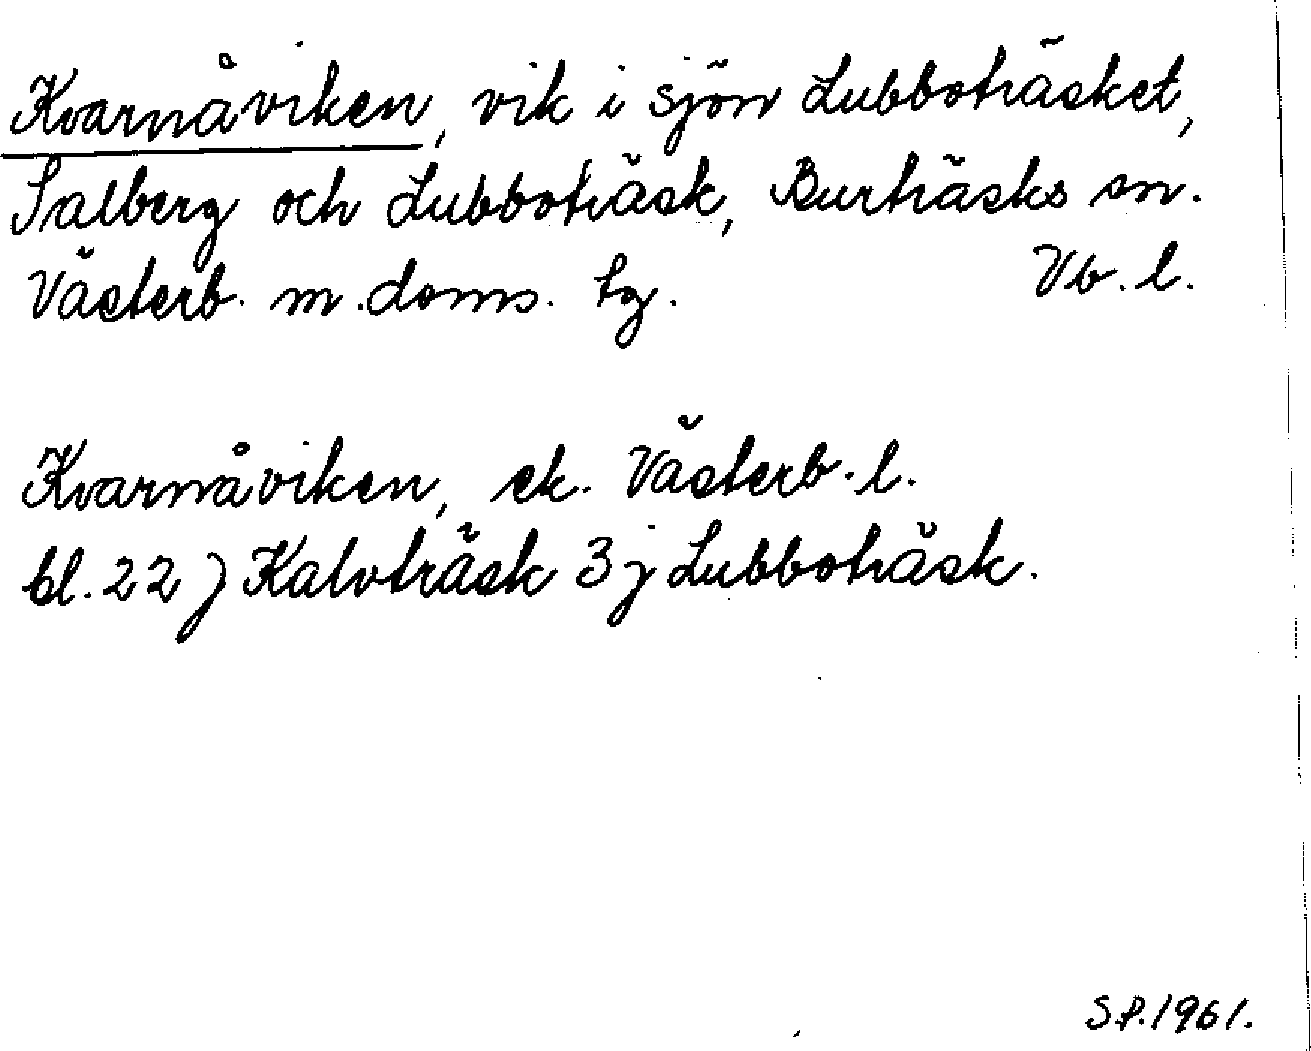 Kvarnåviken, vik i sjön Lubboträsket,
Salberg och Lubboträsk, Burträsks sn.
Västerb. m. doms. tg. Vb. l.
Kvarnåviken, ek. Västerb. l.
bl. 22 j Kalvträsk 3 j Lubboträsk.
S.P. 1961.